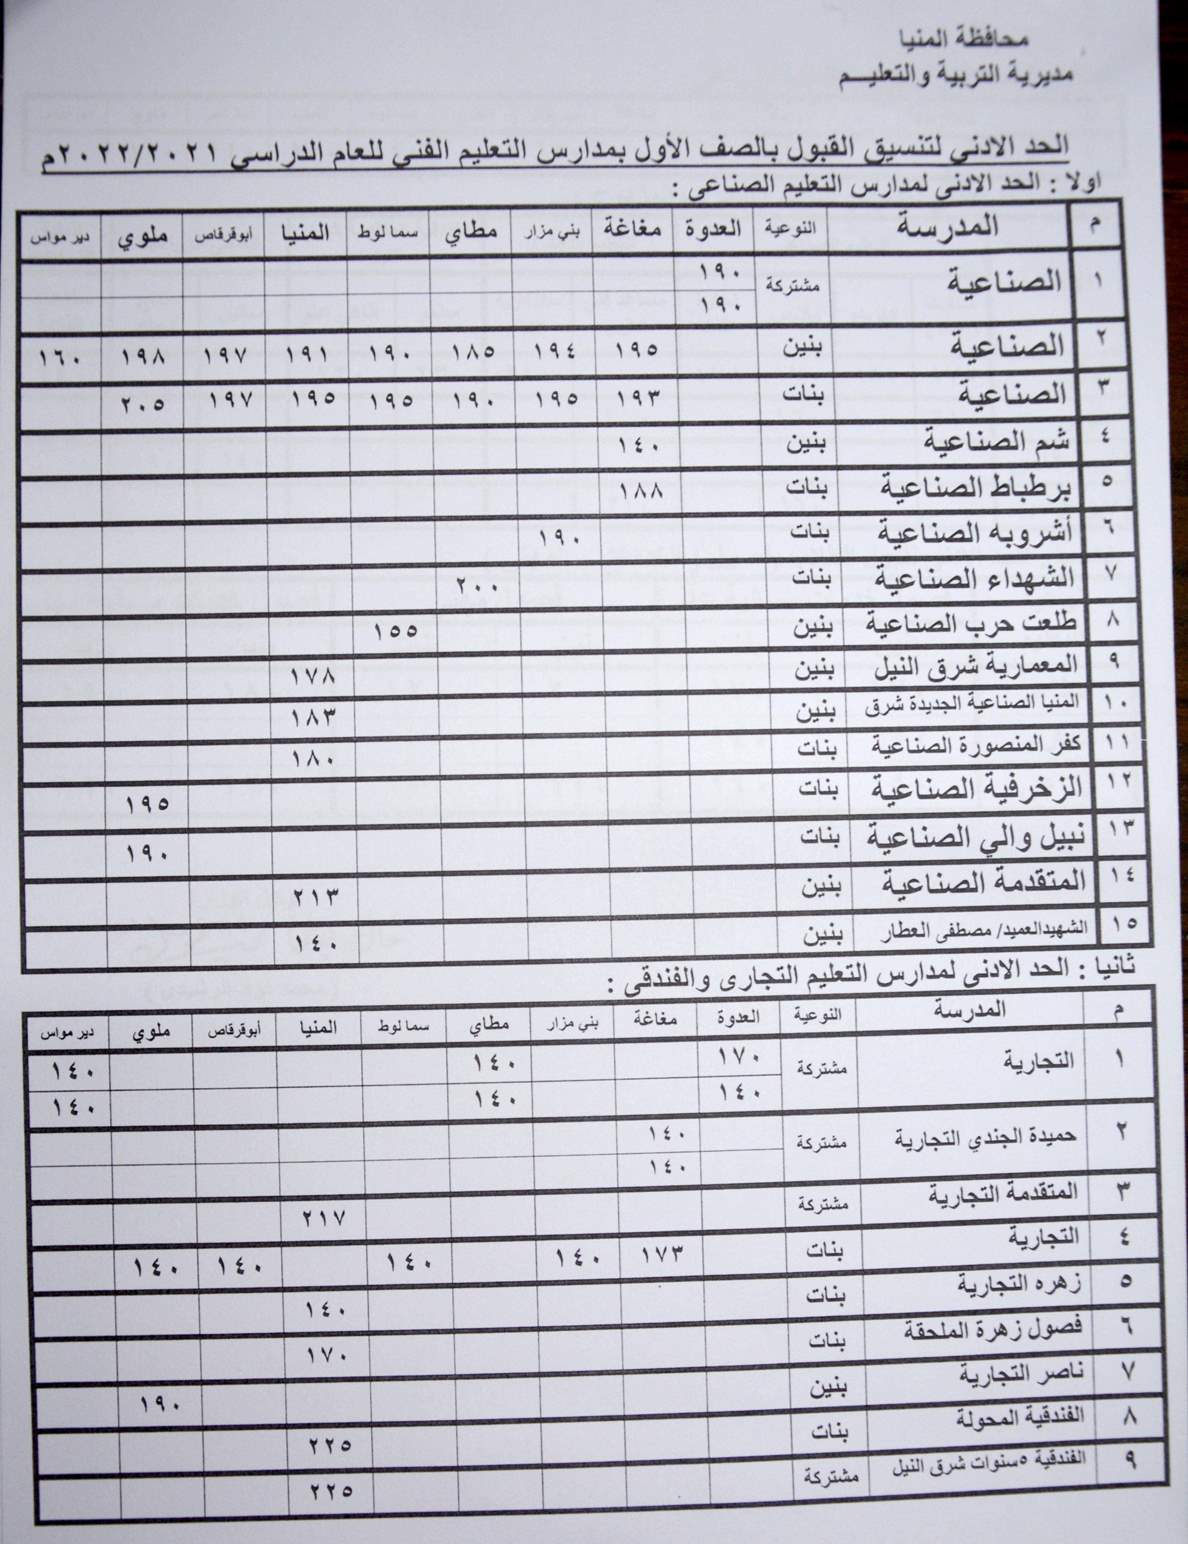 محافظة المنيا
مديرية التربية والتعليـــم
الحد الادنى لتنسيق القبول بالصف الأول بمدارس التعليم الفني للعام الدراسي ٢٠٢٢/٢٠٢١م
اولا : الحد الادنى لمدارس التعليم الصناعى :
م المدرسة النوعية العدوة مغاغة بني مزار مطاي سمالوط المنيا أبوقرقاص ملوي دير مواس
١ الصناعية مشتركة ١٩٠
١٩٠
٢ الصناعية بنين ١٩٥ ١٩٤ ١٨٥ ١٩٠ ١٩١ ١٩٧ ١٩٨ ١٦٠
٣ الصناعية بنات ١٩٣ ١٩٥ ١٩٠ ١٩٥ ١٩٥ ١٩٧ ٢٠٥
٤ شم الصناعية بنين ١٤٠
٥ برطباط الصناعية بنات ١٨٨
٦ أشروبه الصناعية بنات ١٩٠
٧ الشهداء الصناعية بنات ٢٠٠
٨ طلعت حرب الصناعية بنين ١٥٥
٩ المعمارية شرق النيل بنين ١٧٨
١٠ المنيا الصناعية الجديدة شرق بنين ١٨٣
١١ كفر المنصورة الصناعية بنات ١٨٠
١٢ الزخرفية الصناعية بنات ١٩٥
١٣ نبيل والي الصناعية بنات ١٩٠
١٤ المتقدمة الصناعية بنين ٢١٣
١٥ الشهيدالعميد/ مصطفى العطار بنين ١٤٠
ثانيا : الحد الادنى لمدارس التعليم التجارى والفندقى :
م المدرسة النوعية العدوة مغاغة بني مزار مطاي سمالوط المنيا أبوقرقاص ملوي دير مواس
١ التجارية مشتركة ١٧٠ ١٤٠ ١٤٠
١٤٠ ١٤٠ ١٤٠
٢ حميدة الجندي التجارية مشتركة ١٤٠
١٤٠
٣ المتقدمة التجارية مشتركة ٢١٧
٤ التجارية بنات ١٧٣ ١٤٠ ١٤٠ ١٤٠ ١٤٠
٥ زهره التجارية بنات ١٤٠
٦ فصول زهرة الملحقة بنات ١٧٠
٧ ناصر التجارية بنين ١٩٠
٨ الفندقية المحولة بنات ٢٢٥
٩ الفندقية ٥سنوات شرق النيل مشتركة ٢٢٥